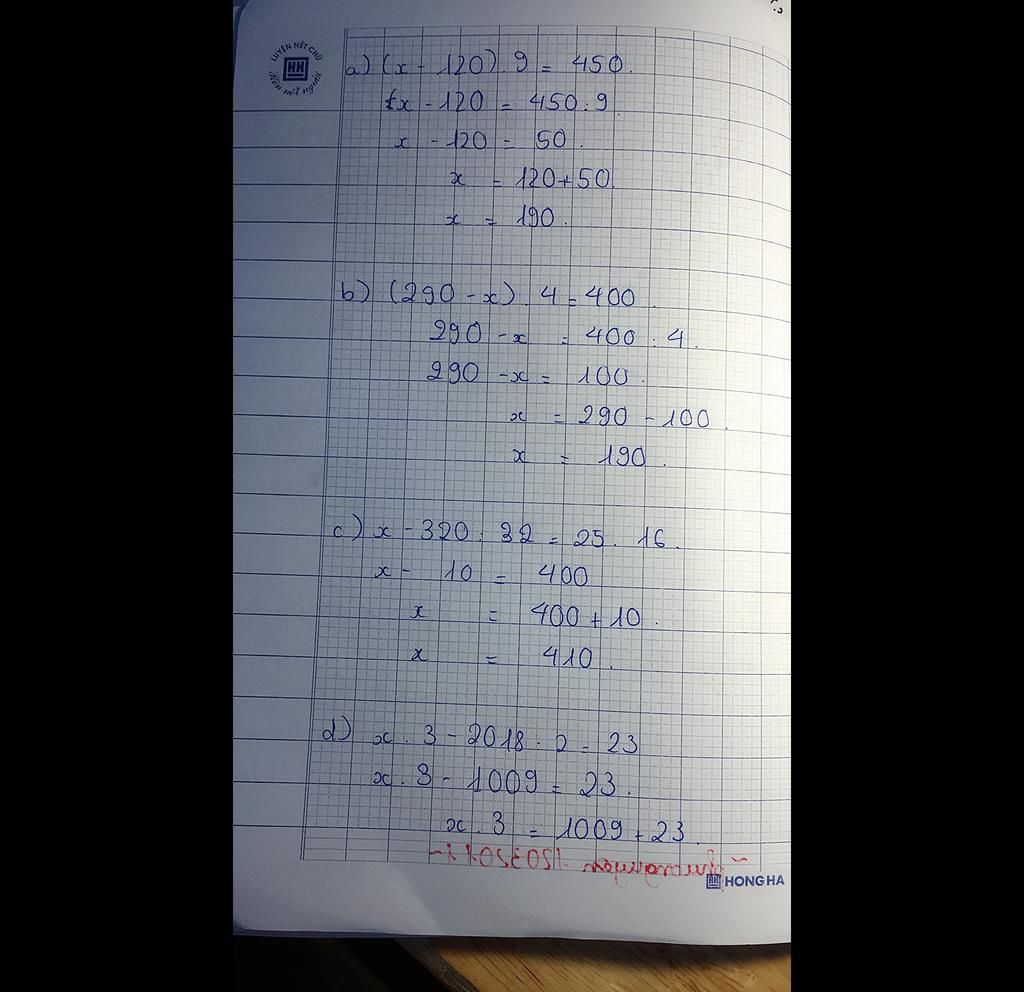 LUYỆN NÉT CHỮ
HH
Rèn nết người
a) (x - 120) . 9 = 450.
x - 120 = 450 : 9
x - 120 = 50.
x = 120 + 50
x = 190.
b) (290 - x) . 4 = 400.
290 - x = 400 : 4.
290 - x = 100.
x = 290 - 100.
x = 190.
c) x - 320 : 32 = 25. 16.
x - 10 = 400
x = 400 + 10.
x = 410.
d) x . 3 - 2018 : 2 = 23
x . 3 - 1009 = 23.
x . 3 = 1009 + 23.
HH HONG HA